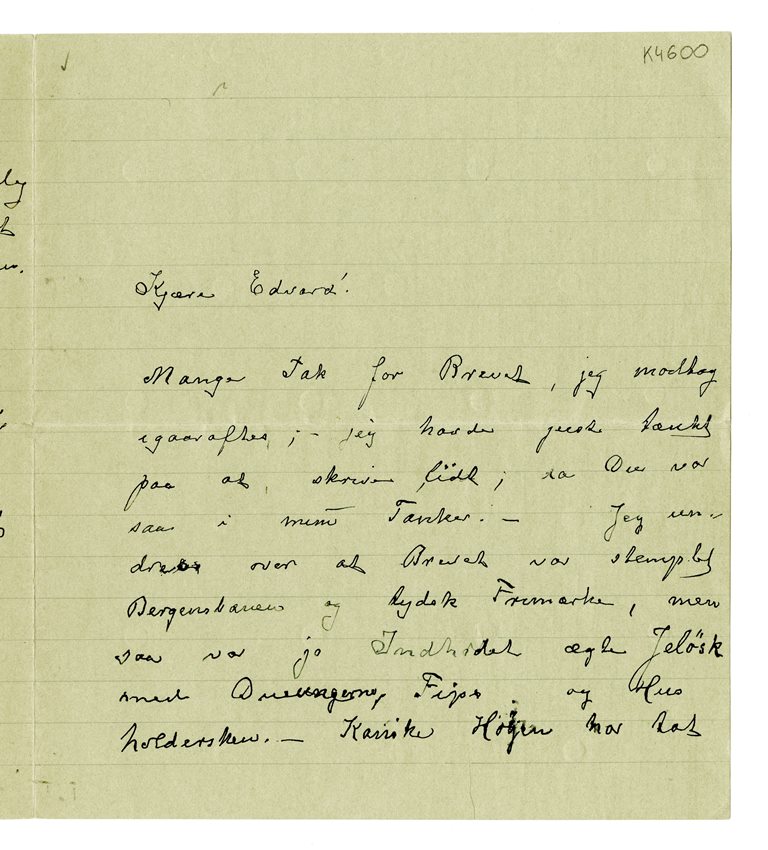 K4600
Kjære Edvard!
Mange Tak for Brevet, jeg modtog
igaaraftes; – jeg havde juste tænkt
paa at skrive lidt; da Du var
saa i mine Tanker. – Jeg un-
dres over at Brevet var stemplet
Bergensbanen og tydsk Frimærke, men
saa var jo Indholdet ægte Jeløsk
med Dueungerne, Fips og Hus
holdersken. – Kanske Høien har tat